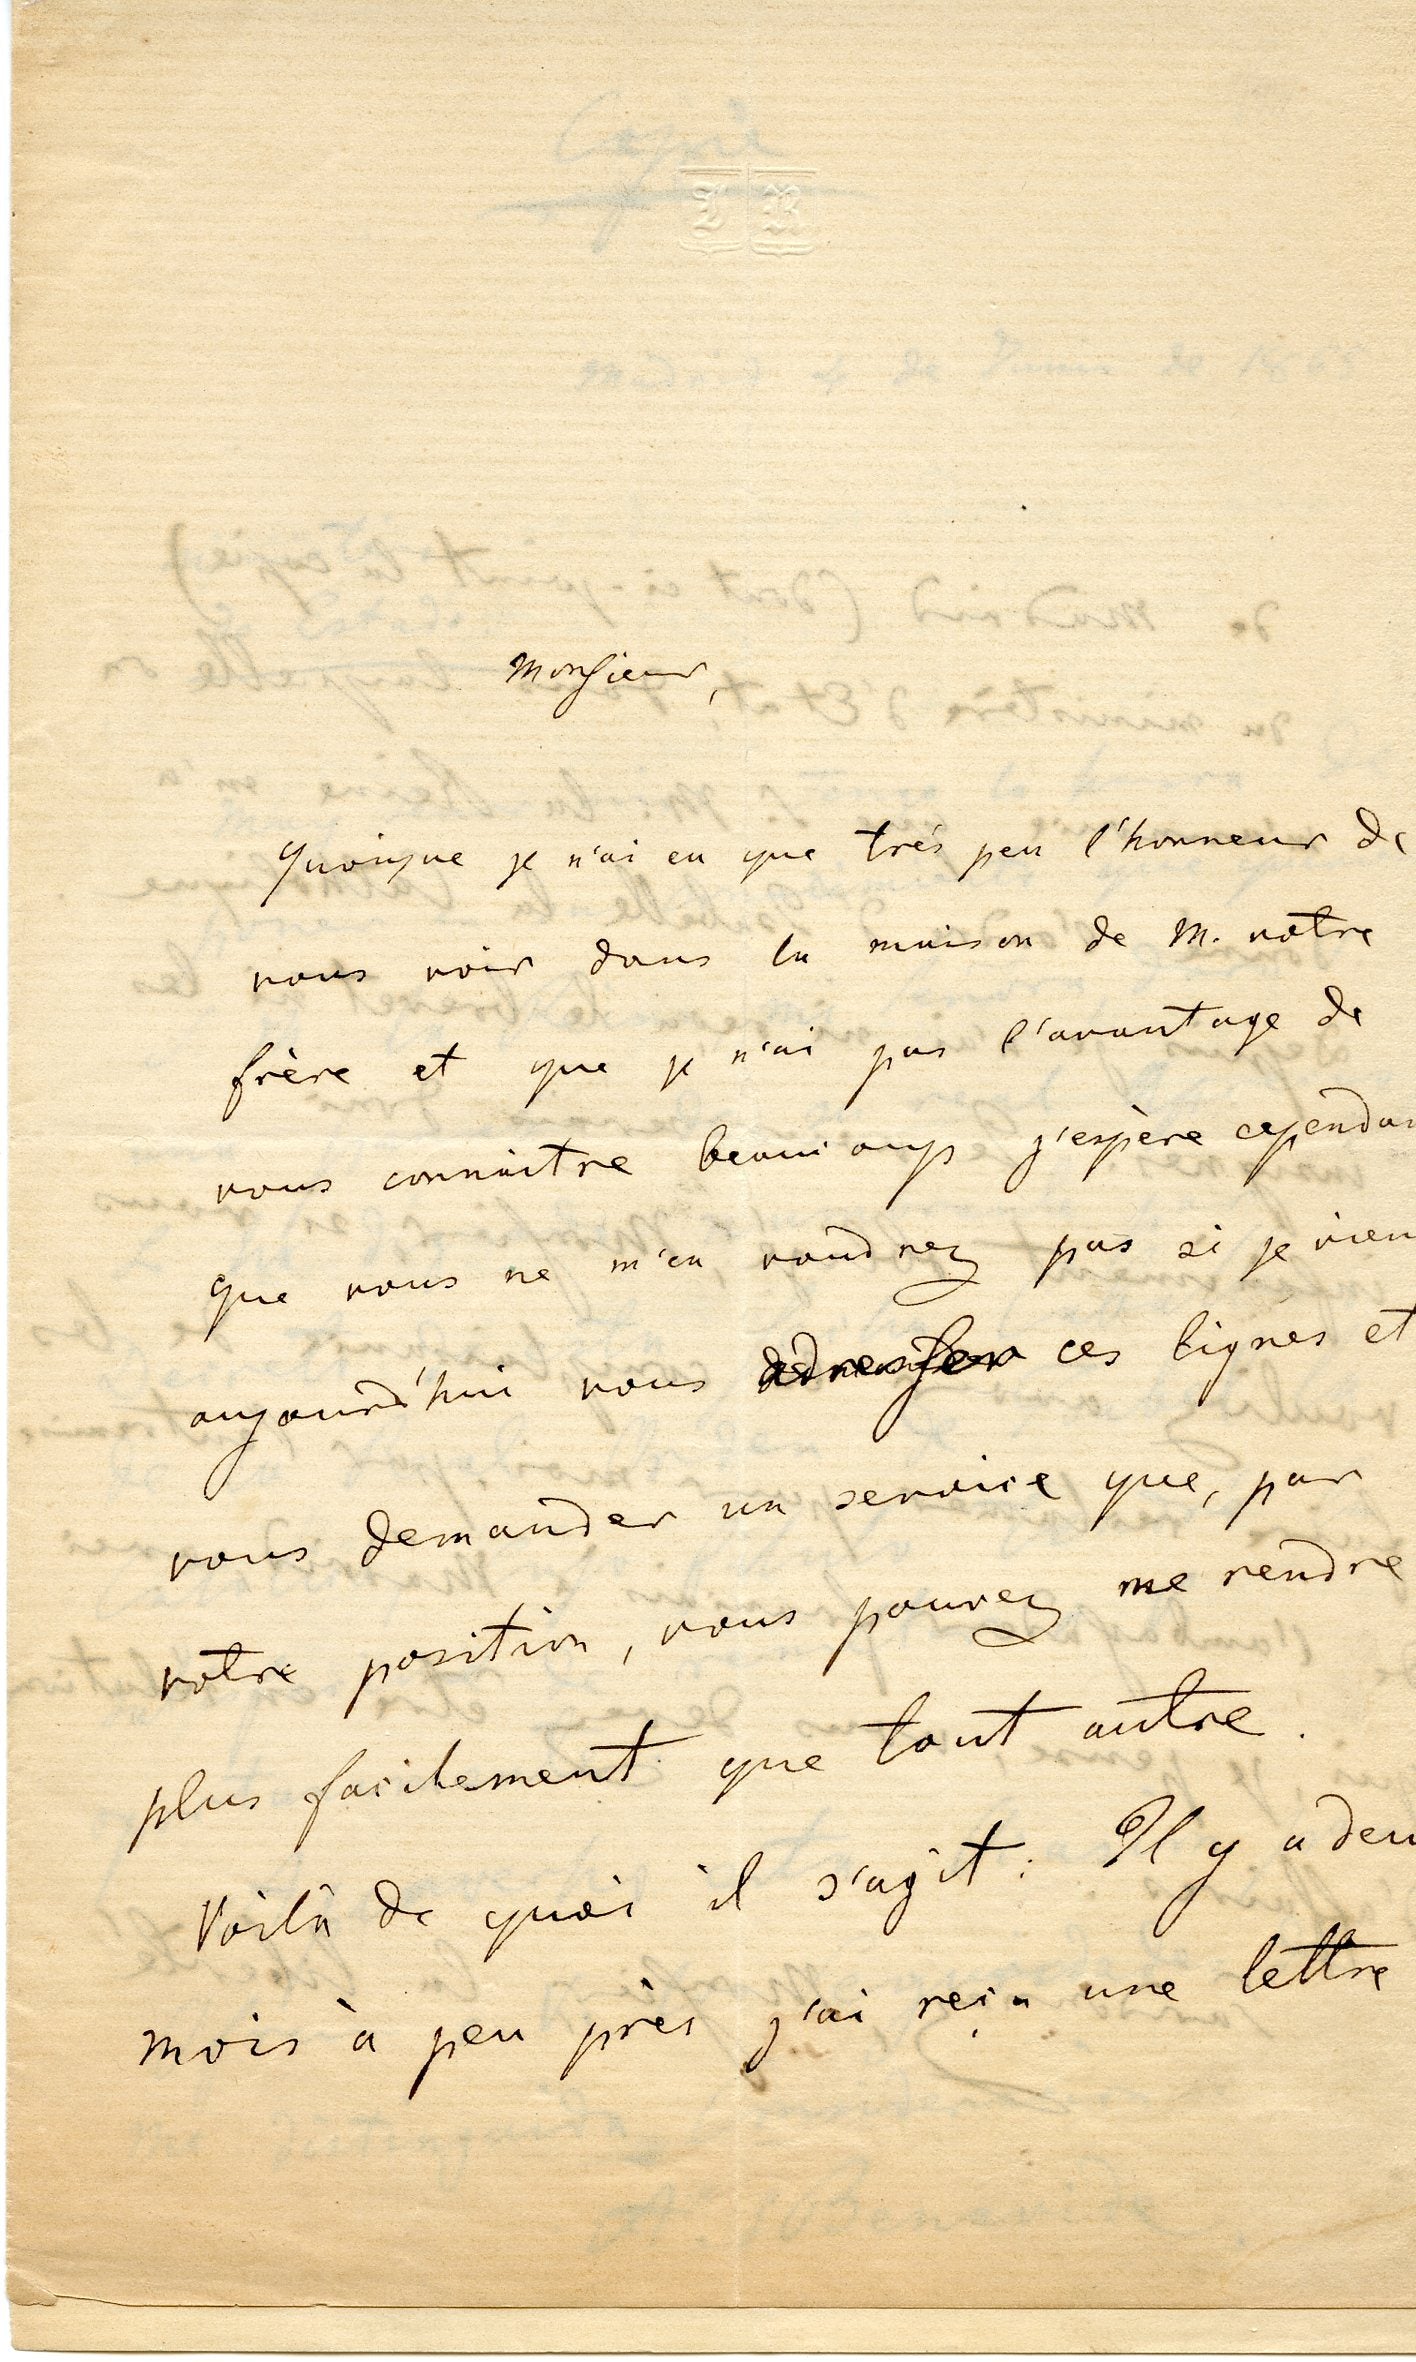 J R
Monsieur,
Quoique je n'ai eu que trés peu l'honneur de
vous voir dans la maison de M. votre
frère et que je n'ai pas l'avantage de
vous connaitre beaucoup j'espère cependan
que vous ne m'en voudrez pas si je vien
aujourd'hui vous adresser ces lignes et
vous demander un service que, par
votre position, vous pouvez me rendre
plus facilement que tout autre.
Voilà de quoi il s'agit: Il y a deu
mois à peu près j'ai reçu une lettre